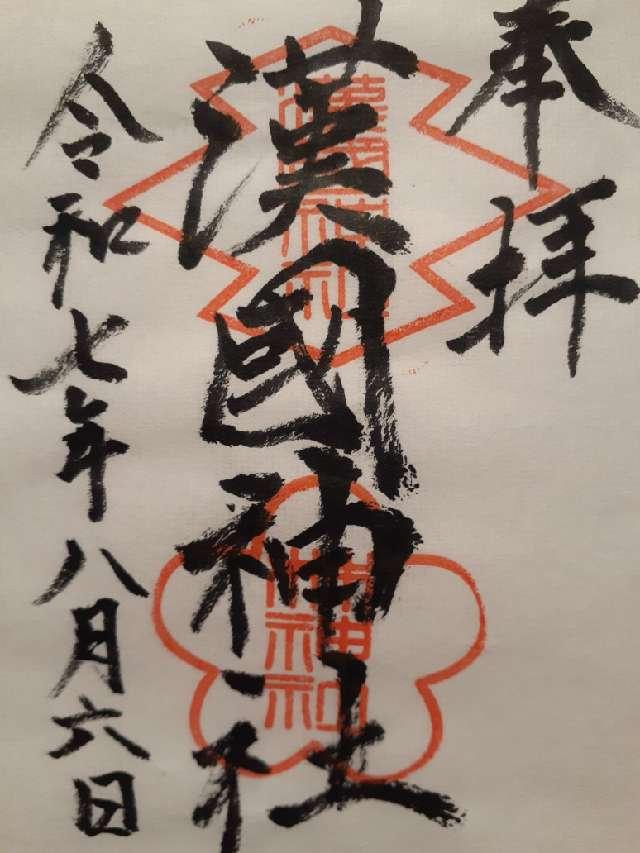 奉拝
漢國神社
漢國神社
林神社
令和七年八月六日